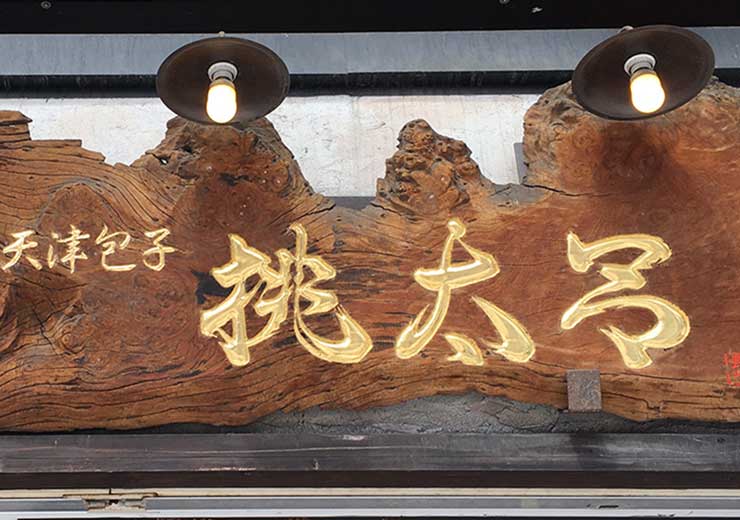 天津包子 桃太呂